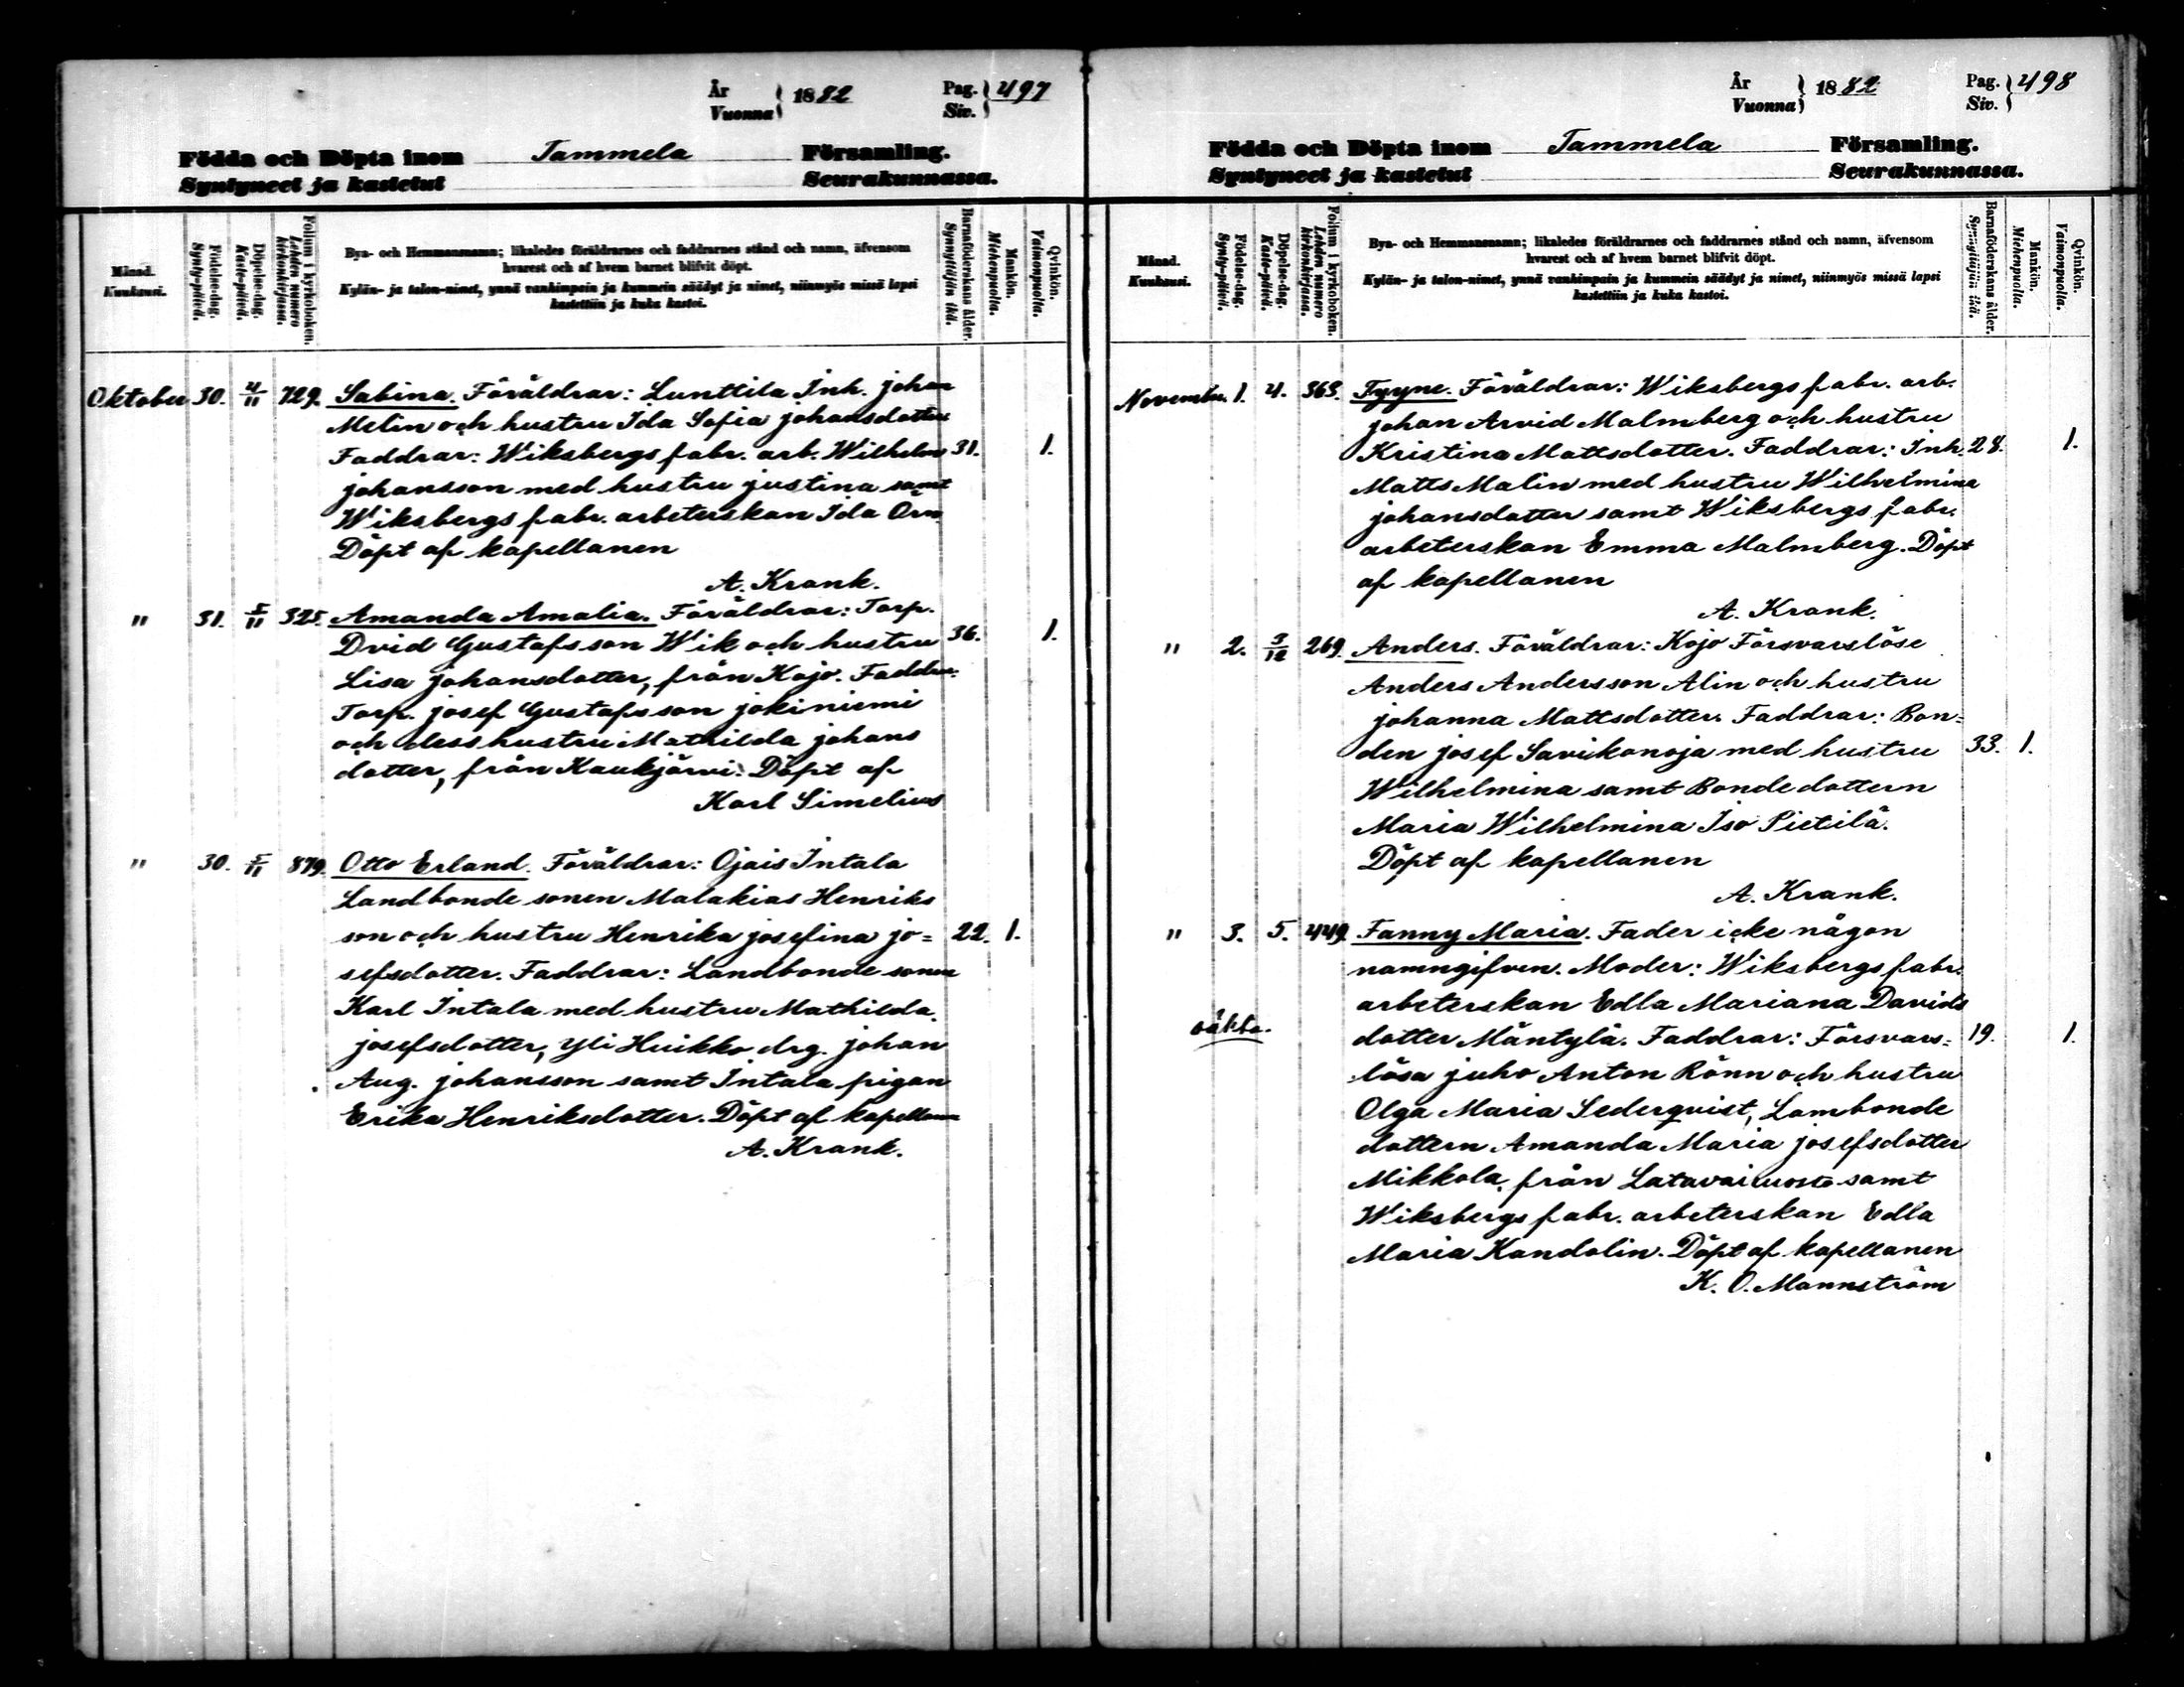 År Vuonna } 1882 Pag. Siv. } 497
Födda och Döpta inom Tammela Församling.
Syntyneet ja kastetut Seurakunnassa.
Månad. Kuukausi.
Födelse-dag. Synty-päivä.
Döpelse-dag. Kaste-päivä.
Folium i kyrkoboken. Lehden numero kirkonkirjassa.
Bya- och Hemmansnamn; likaledes föräldrarnes och faddrarnes stånd och namn, äfvensom
hvarest och af hvem barnet blifvit döpt.
Kylän- ja talon-nimet, ynnä vanhimpain ja kummein säädyt ja nimet, niinmyös missä lapsi
kastettiin ja kuka kastoi.
Barnaföderskans ålder. Synnyttäjän ikä.
Mankön. Miehenpuolta.
Qvinkön. Vaimonpuolta.
Oktober 30. 4/11 729. Sabina. Föräldrar: Lunttila Inh. Johan
Melin och hustru Ida Sofia Johansdotter
Faddrar: Wiksbergs fabr. arb. Wilhelm 31. 1.
Johansson med hustru Justina samt
Wiksbergs fabr. arbeterskan Ida Örn.
Döpt af kapellanen
A. Krank.
" 31. 5/11 325. Amanda Amalia. Föräldrar: Torp.
Dvid Gustafsson Wik och hustru 36. 1.
Lisa Johansdotter, från Kojo. Faddrar:
Torp. Josef Gustafsson Jokiniemi
och dess hustru Mathilda Johans
dotter, från Kaukjärvi. Döpt af
Karl Simelius
" 30. 5/11 879. Otto Erland. Föräldrar: Ojais Intala
Landbonde sonen Malakias Henriks
son och hustru Henrika Josefina Jo= 22. 1.
sefsdotter. Faddrar: Landbonde sonen
Karl Intala med hustru Mathilda
Josefsdotter, Yli Huikko drg. Johan
Aug. Johansson samt Intala pigan
Erika Henriksdotter. Döpt af kapellanen
A. Krank.
År Vuonna } 1882 Pag. Siv. } 498
Födda och Döpta inom Tammela Församling.
Syntyneet ja kastetut Seurakunnassa.
Månad. Kuukausi.
Födelse-dag. Synty-päivä.
Döpelse-dag. Kaste-päivä.
Folium i kyrkoboken. Lehden numero kirkonkirjassa.
Bya- och Hemmansnamn; likaledes föräldrarnes och faddrarnes stånd och namn, äfvensom
hvarest och af hvem barnet blifvit döpt.
Kylän- ja talon-nimet, ynnä vanhimpain ja kummein säädyt ja nimet, niinmyös missä lapsi
kastettiin ja kuka kastoi.
Barnaföderskans ålder. Synnyttäjän ikä.
Mankön. Miehenpuolta.
Qvinkön. Vaimonpuolta.
November. 1. 4. 363. Tyyne. Föräldrar: Wiksbergs fabr. arb.
Johan Arvid Malmberg och hustru
Kristina Mattsdotter. Faddrar: Inh. 28. 1.
Matts Malin med hustru Wilhelmina
Johansdotter samt Wiksbergs fabr.
arbeterskan Emma Malmberg. Döpt
af kapellanen
A. Krank.
" 2. 3/12 269. Anders. Föräldrar: Kojo Försvarslöse
Anders Andersson Alin och hustru
Johanna Mattsdotter. Faddrar: Bon=
den Josef Savikonoja med hustru 33. 1.
Wilhelmina samt Bondedottern
Maria Wilhelmina Iso Pietilä.
Döpt af kapellanen
A. Krank.
" 3. 5. 449. Fanny Maria. Fader icke någon
namngifven. Moder: Wiksbergs fabr.
arbeterskan Edla Mariana Davids
oäkta. dotter Mäntylä. Faddrar: Försvars= 19. 1.
lösa Juho Anton Rönn och hustru
Olga Maria Sederqvist, Lambonde
dottern Amanda Maria Josefsdotter
Mikkola, från Latavainosto samt
Wiksbergs fabr. arbeterskan Edla
Maria Kandolin. Döpt af kapellanen
K. O. Mannström